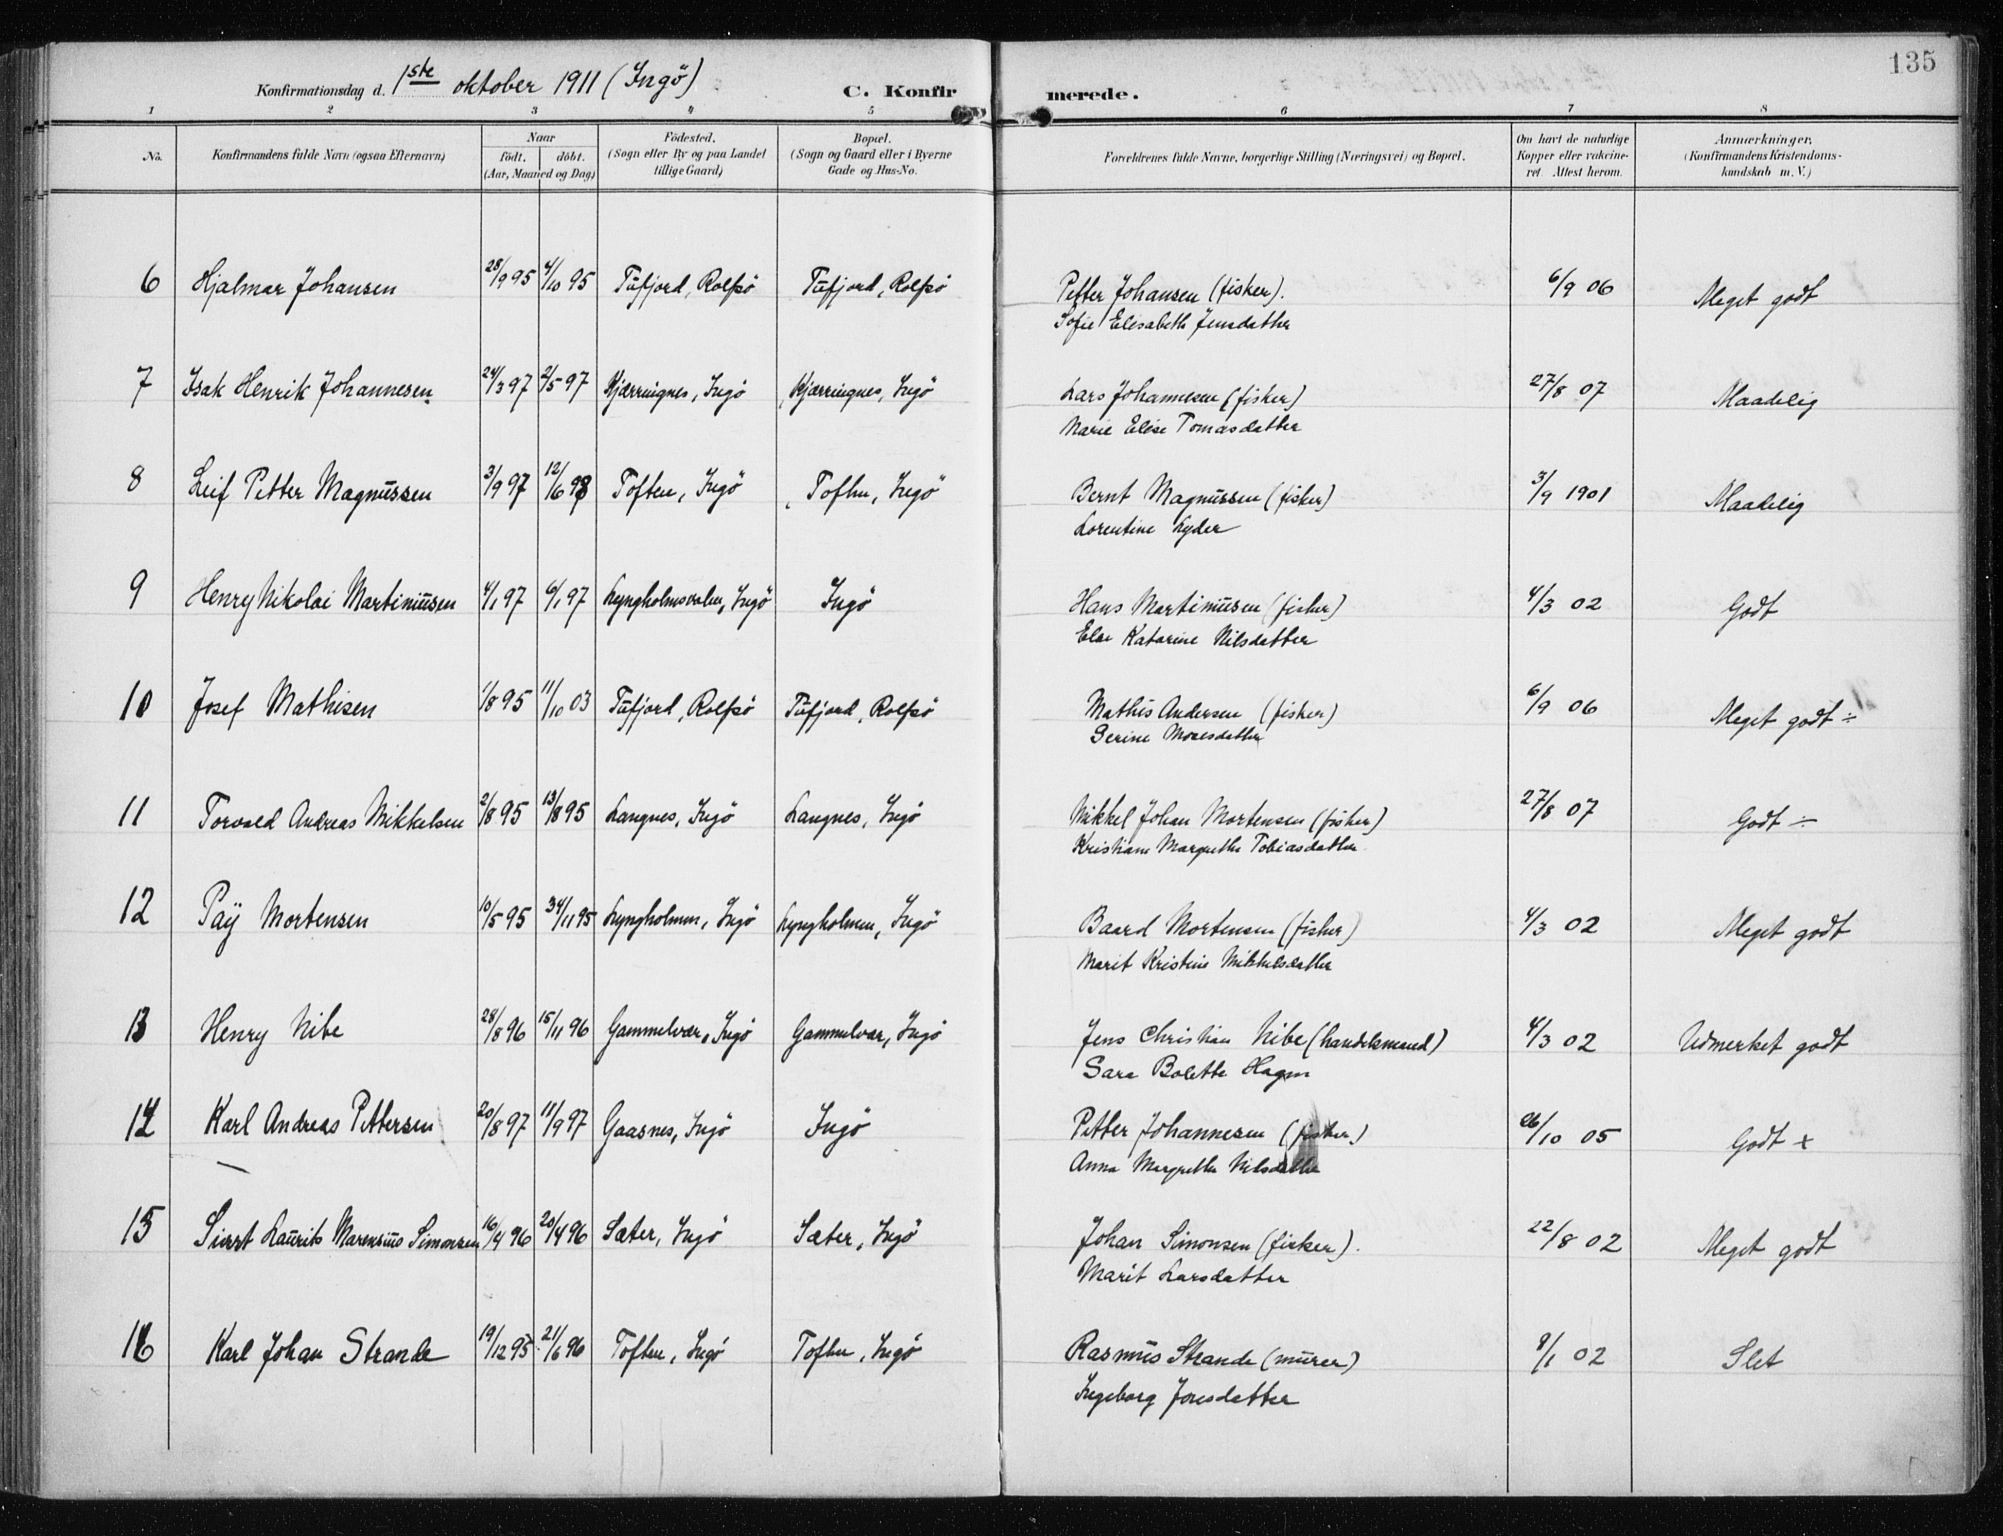 135
Konfirmationsdag d. 1ste oktober 1911 (Ingö) C. Konfirmerede.
1 2 3 4 5 6 7 8
No. Konfirmandens fulde Navn (ogsaa Efternavn) Naar födt. döbt. (Aar, Maaned og Dag) Födested. (Sogn eller By og paa Landet tillige Gaard) Bopæl. (Sogn og Gaard eller i Byerne Gade og Hus-No. Forældrenes fulde Navne, borgerlige Stilling (Næringsvei) og Bopæl. Om havt de naturlige Kopper eller vakcineret. Attest herom. Anmærkninger. (Konfirmandens Kristendomskundskab m. V.)
6 Hjalmar Johansen 28/9 95 4/10 95 Tufjord, Rolfsö Tufjord, Rolfsö Petter Johansen (fisker). 6/9 06 Meget godt
Sofie Elisabeth Jensdatter
7 Isak Henrik Johannesen 24/3 97 2/5 97 Kjærringnes, Ingö Kjærringnes, Ingö Lars Johannesen (fisker) 27/8 07 Maadelig
Marie Elise Tomasdatter
8 Leif Petter Magnussen 3/9 97 12/6 98 Toften, Ingö Toften, Ingö Bernt Magnussen (fisker) 3/9 1901 Maadelig
Lorentine Lyder
9 Henry Nikolai Martinusen 4/1 97 6/1 97 Lyngholmsvalen, Ingö Ingö Hans Martinusen (fisker) 4/3 02 Godt
Else Katarine Nilsdatter
10 Josef Mathisen 1/8 95 11/10 03 Tufjord, Rolfsö Tufjord, Rolfsö Mathis Andersen (fisker) 6/9 06 Meget godt ÷
Serine Mosesdatter
11 Torvald Andreas Mikkelsen 2/8 95 13/8 95 Langnes, Ingö Langnes, Ingö Mikkel Johan Mortensen (fisker) 27/8 07 Godt ÷
Kristiane Margrethe Tobiasdatter
12 Paÿ Mortensen 10/5 95 /11 95 Lyngholmen, Ingö Lyngholmen, Ingö Baard Mortensen (fisker) 4/3 02 Meget godt
Marit Kristine Mikkelsdatter
13 Henry Nibe 28/8 96 15/11 96 Gammelvær, Ingö Gammelvær, Ingö Jens Christian Nibe (handelsmand) 4/3 02 Udmerket godt
Sara Bolette Hagen
14 Karl Andreas Pettersen 20/8 97 11/9 97 Gaasnes, Ingö Ingö Petter Johannesen (fisker.) 26/10 05 Godt +
Anna Margrethe Nilsdatter
15 Sivert Laurits Marensius Simonsen 16/4 96 20/4 96 Sæter, Ingö Sæter, Ingö Johan Simonsen (fisker). 22/8 02 Meget godt
Marit Larsdatter
16 Karl Johan Strande 19/12 95 21/6 96 Toften, Ingö Toften, Ingö Rasmus Strande (murer) /1 02 Slet
Ingeborg Jonsdatter